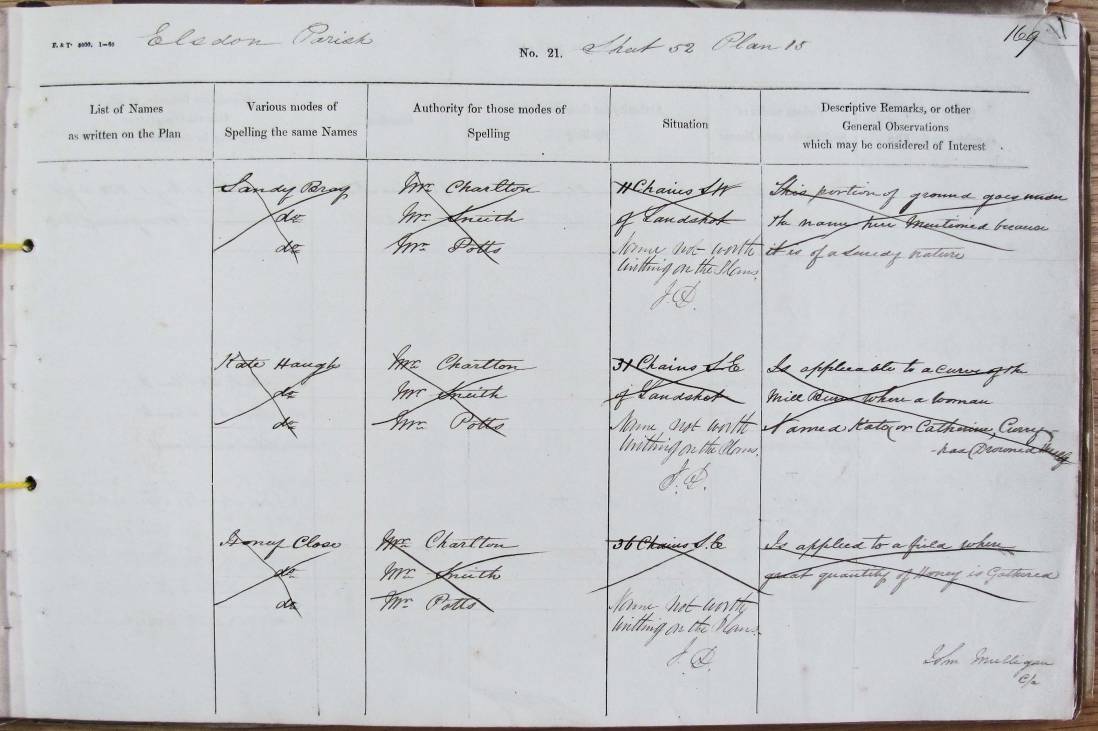 F. & T. 5000. 1-60
Elsdon Parish
No. 21. Sheet 52 Plan 15
169
List of Names
as written on the Plan
Various modes of
Spelling the same Names
Authority for those modes of
Spelling
Situation
Descriptive Remarks, or other
General Observations
which may be considered of Interest
Sandy Bray Mr. Charlton 11 Chains S.W This portion of ground goes under
do Mr. Sneith of Landshot the name here Mentioned because
do Mr. Potts Name not worth it is of a Sandy nature
writting on the Plans.
J.D.
Kate Haugh Mr. Charlton 31 Chains S.E Is applicable to a Curve of the
do Mr. Sneith of Landshot Mill Burn where a Woman
do Mr. Potts Name not worth Named Kate, or Catherine, Curry
writting on the Plans. -was Drowned
J.D.
Honey Close Mr. Charlton 36 Chains S.E Is applied to a field where
do Mr. Sneith great quantity of Honey is Gathered
do Mr. Potts Name not worth
writting on the Plans.
J.D.
John Mulligan
C/a